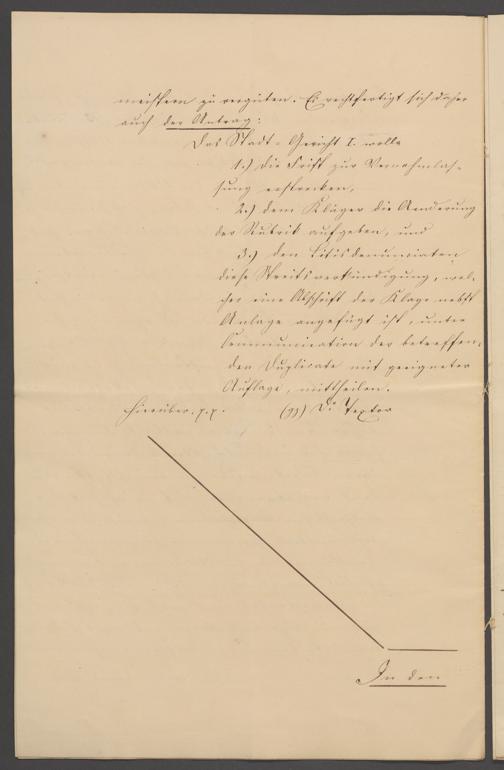 meistern zu vergüten. Es rechtfertigt sich daher
auch der Antrag:
Das Stadt-Gericht I. wolle
1.) die Frist zur Vernehmlas-
sung erstrecken,
2.) dem Kläger die Aenderung
der Rubrik aufgeben, und
3.) den Litisdenunciaten
diese Streitsverkündigung, wel-
cher eine Abschrift der Klage nebst
Anlage angefügt ist, unter
Communication der betreffen-
den Duplicate mit geeigneter
Auflage, mittheilen.
Hierüber. p. p. (gz) Dr Textor
In den